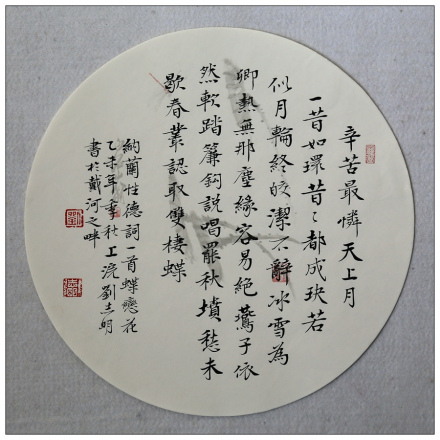 辛苦最憐天上月
一昔如環昔〻都成玦若
似月輪終皎潔不辭冰雪為
卿熱無那塵緣容易絕鷰子依
然軟踏簾鉤説唱罷秋墳愁未
歇春叢認取雙棲蝶
納蘭性德詞一首蝶戀花
乙未年季秋上浣劉明
書於戴河之畔